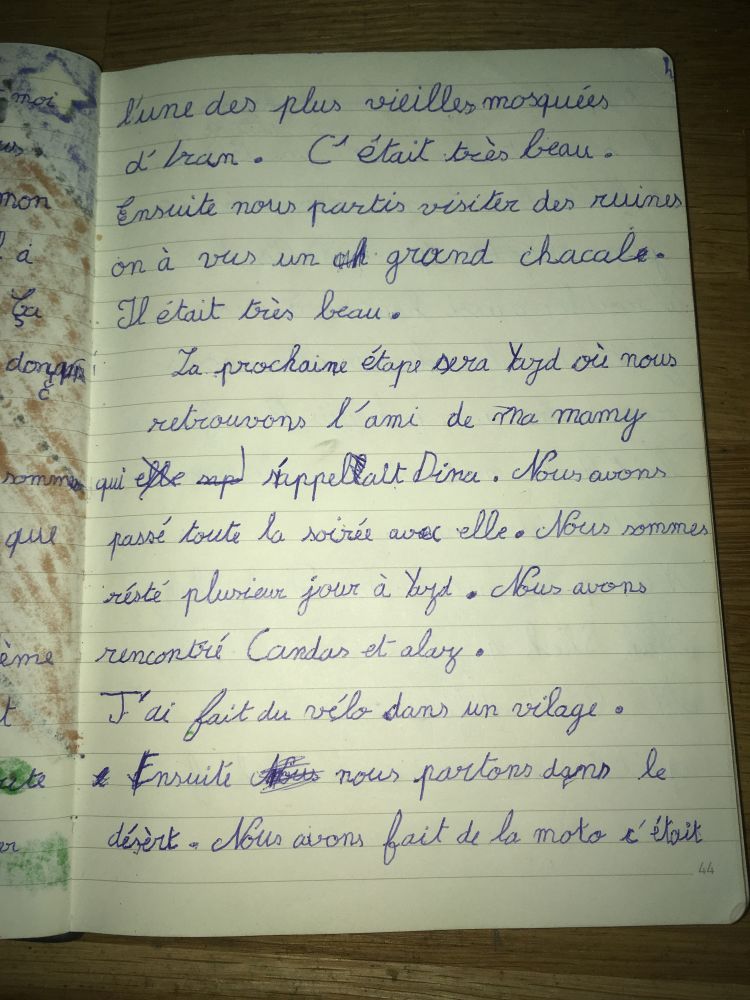 l'une des plus vieilles mosquées
d'Iran. C'était très beau.
Ensuite nous partis visiter des ruines
on à vus un grand chacal.
Il était très beau.
La prochaine étape sera Yazd où nous
retrouvons l'ami de ma mamy
qui s'appellait Dina. Nous avons
passé toute la soirée avec elle. Nous sommes
résté plusieur jour à Yazd. Nous avons
rencontré Candas et alay.
J'ai fait du vélo dans un vilage.
Ensuité nous partons dans le
désèrt. Nous avons fait de la moto c'était
44
moi
mon
à
ça
somme
que
ème
t